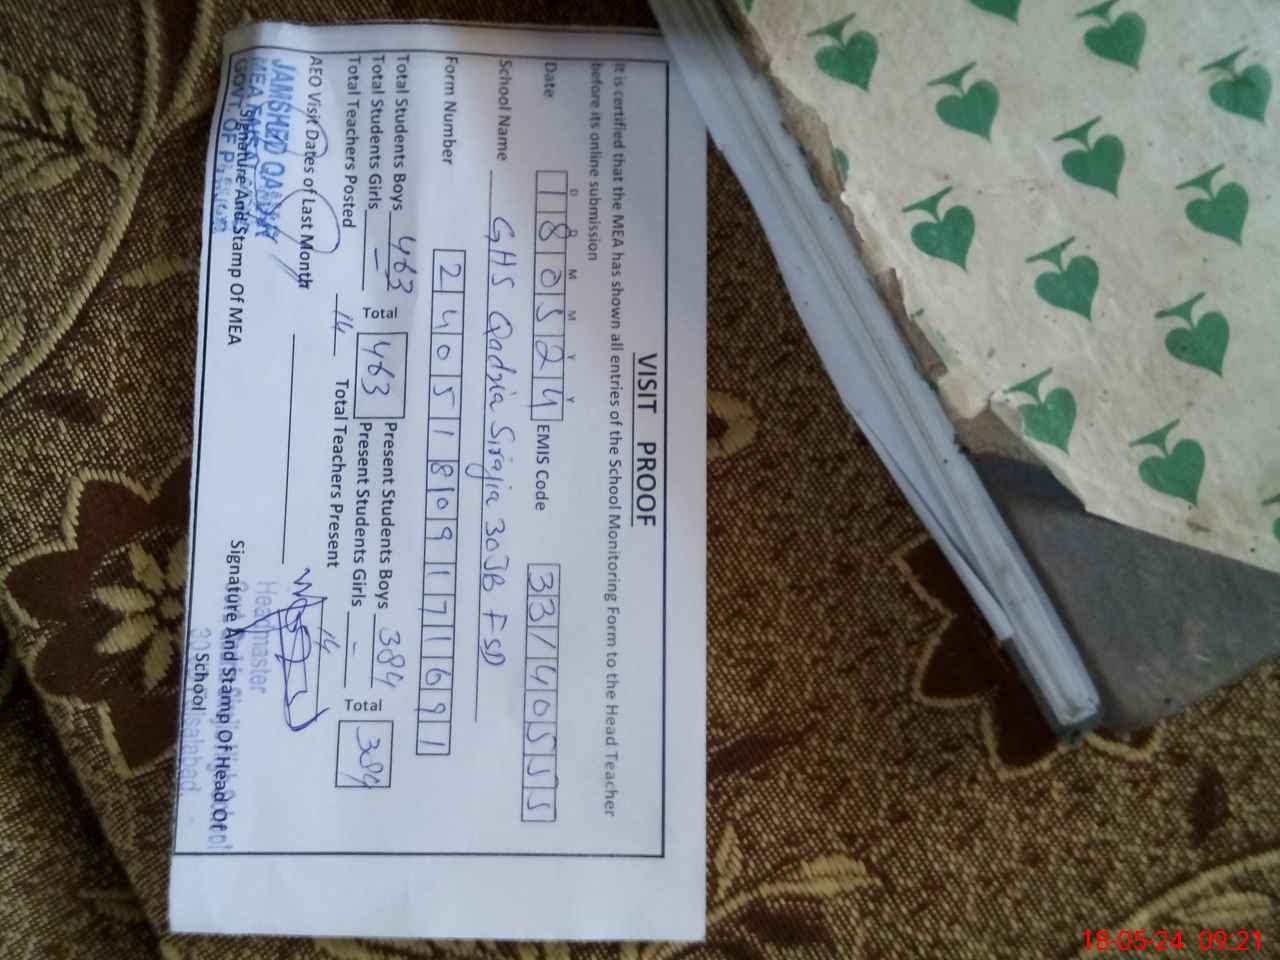 VISIT PROOF
It is certified that the MEA has shown all entries of the School Monitoring Form to the Head Teacher
before its online submission
D D M M Y Y
Date 180524 EMIS Code 33140555
School Name GHS Qadria Sirajia 30JB FSD
Form Number 24051809171691
Total Students Boys 463 Total 463 Present Students Boys 384 Total 384
Total Students Girls - Present Students Girls -
Total Teachers Posted 14 Total Teachers Present 14
AEO Visit Dates of Last Month
JAMSHED QAISER
MEA
GOVT. OF
Signature And Stamp Of MEA
Headmaster
Signature And Stamp Of Head Of
School
18-05-24 09:21